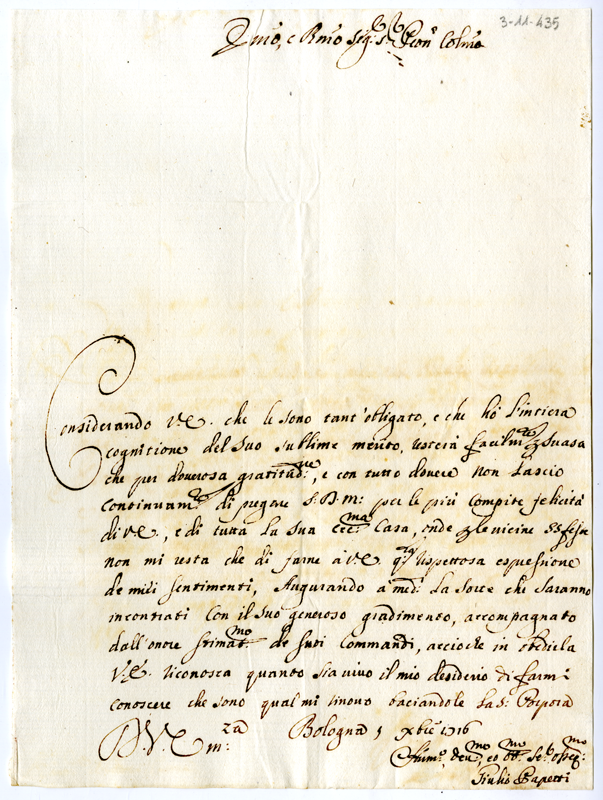 3-11-435
Emo, e Rmo Sig:r Sig:r Pron Colmo
Considerando V:E. che le sono tant'obligato, e che hò l'intiera
cognitione del suo sublime merito, resterà facilmte psuasa
che per doverosa gratitudne, e con tutto dovere non lascio
continuamte di pregare S:D:M: per le più compite felicità
di V:E, e di tutta la sua Eccma Casa, onde p le vicine SSme feste
non mi resta che di farne à V:E qta rispettosa espressione
de miei sentimenti, Augurando à med:i la sorte che saranno
incontrati con il suo generoso gradimento, accompagnato
dall'onore stimatmo de suoi Commandi, acciochè in obedirla
V:E. riconosca quanto sia vivo il mio desiderio di farmi
conoscere che sono qual mi rinovo baciandole la S: Porpora
D V:E m:za Bologna 9 Xbre 1716
Humo, Devmo, ed Obmo Serre osseqmo
Giulio Papetti